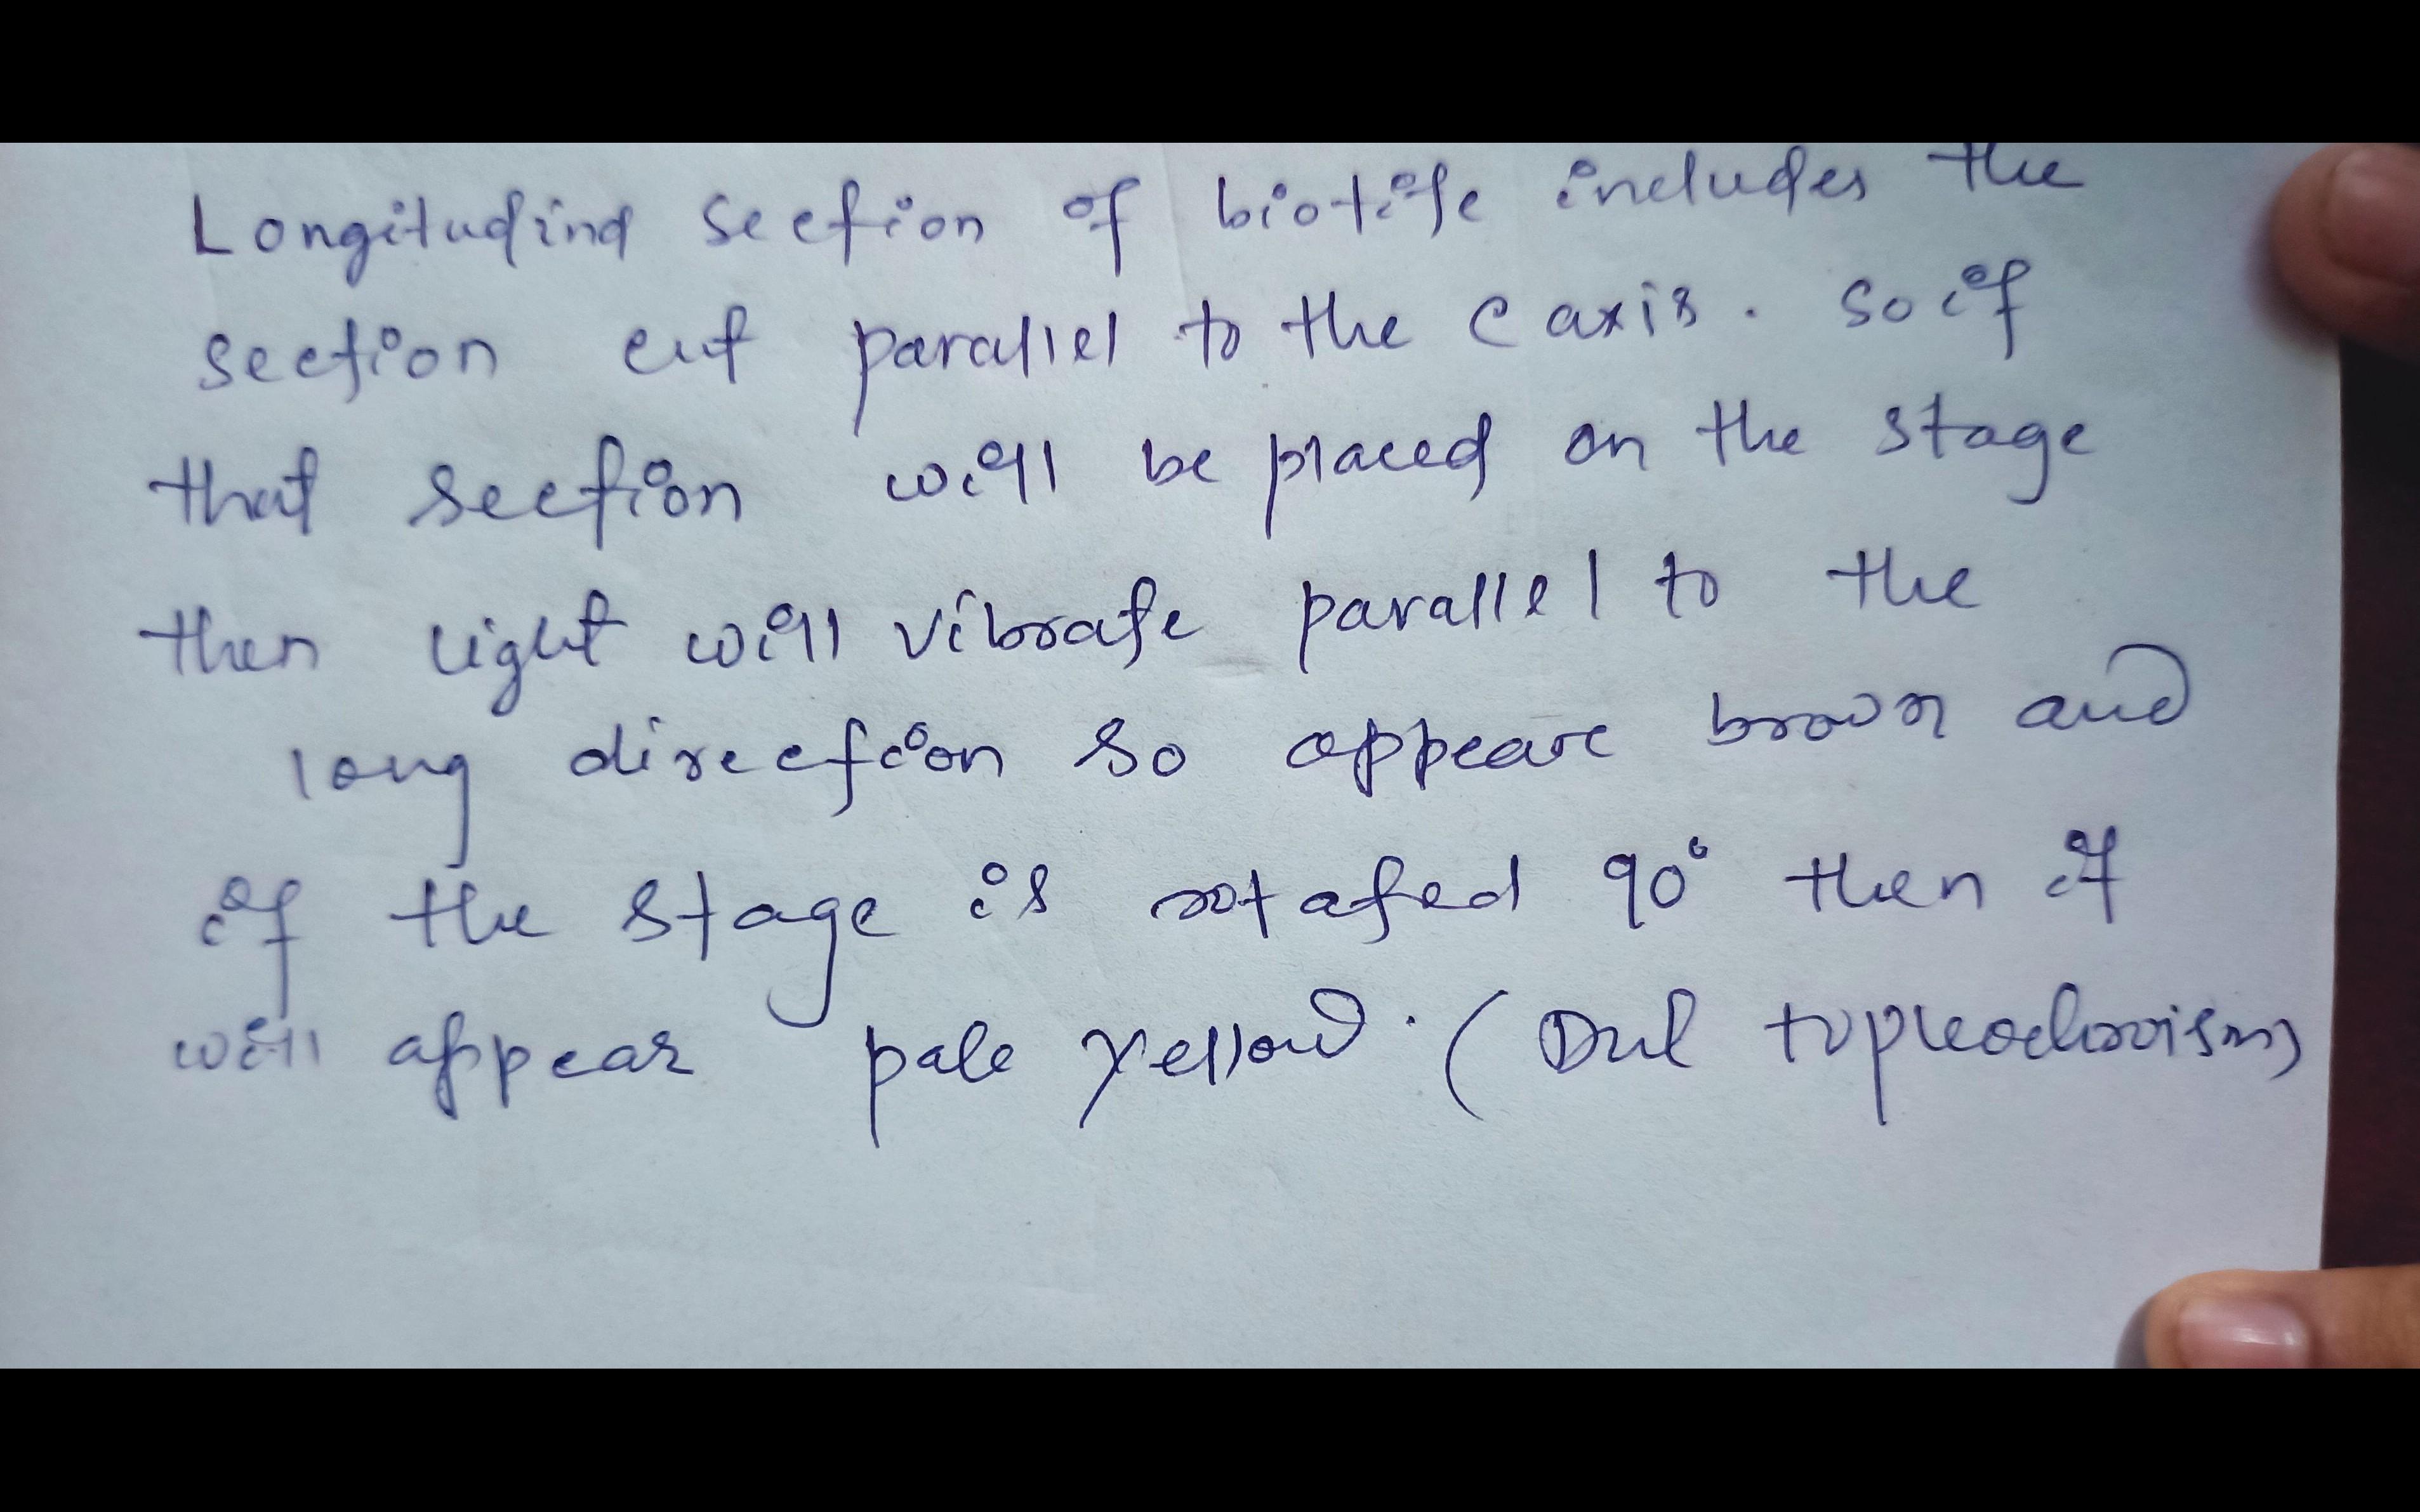 Longitudinal section of biotite includes the
section cut parallel to the c axis. So if
that section will be placed on the stage
then light will vibrate parallel to the
long direction so appeare brown and
if the stage is rotated 90° then it
will appear pale yellow. (Due to pleochroism)